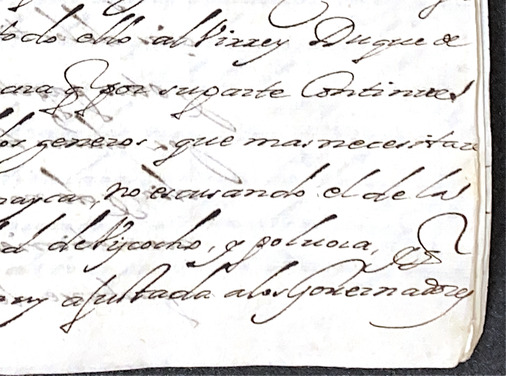 todo ello al Virrey Duque de
para q̃ por su parte Continue el
los generos, que mas necesitan
no escusando el de la
de Viscocho, y polvora,
muy ajustada a los Governadores